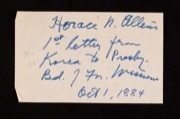 Horace N. Allen's
1st letter from
Korea to Presby.
Bd. of Fn. Missions
Oct 1, 1884